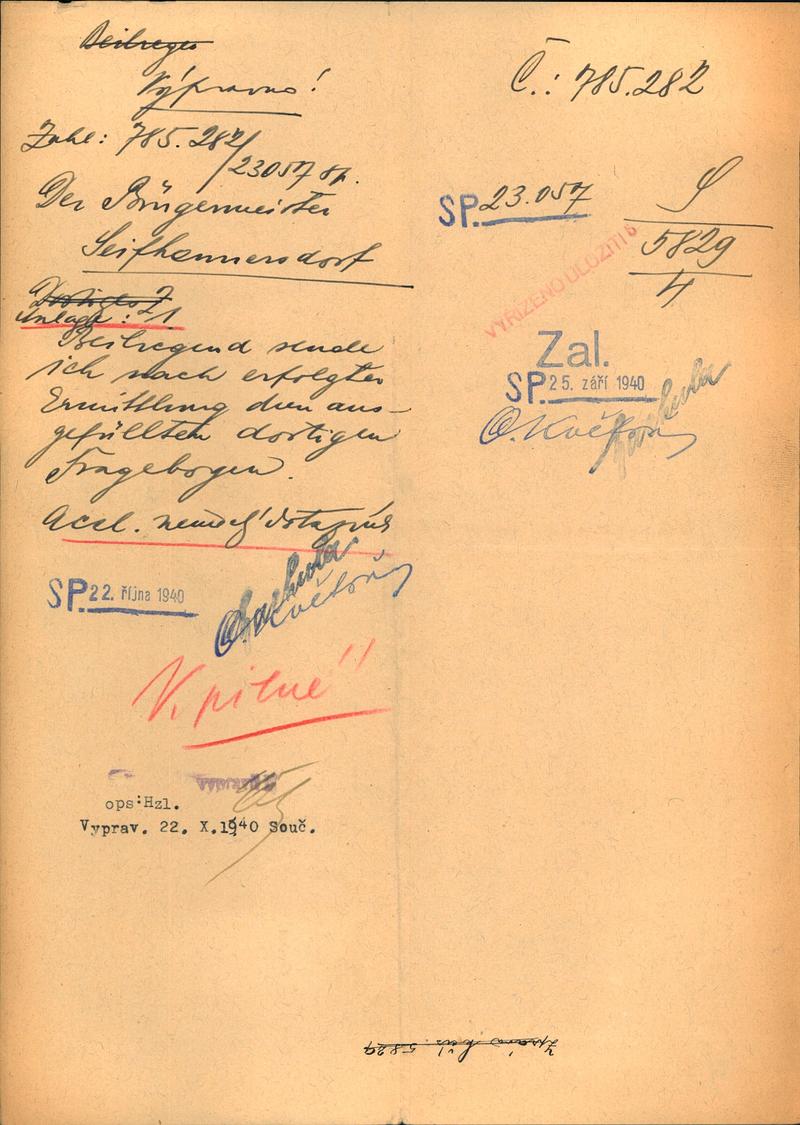 Beiliegend
Výpravno!
Zahl: 785.282/
23057 SP.
Der Bürgermeister
Seifhennersdorf
Anlage: 1
Beiliegend sende
ich nach erfolgter
Ermittlung den aus-
gefüllten dortigen
Fragebogen.
Acel. německý dotazník
SP. 22. října 1940
O. Květoň
V. pilné!!
ops:Hzl.
Vyprav. 22. X.1940 Souč.
Č.: 785.282
SP. 23.057
S
5829
4
VYŘÍZENO ULOŽITI
Zal.
SP. 25. září 1940
O. Květoň
5829